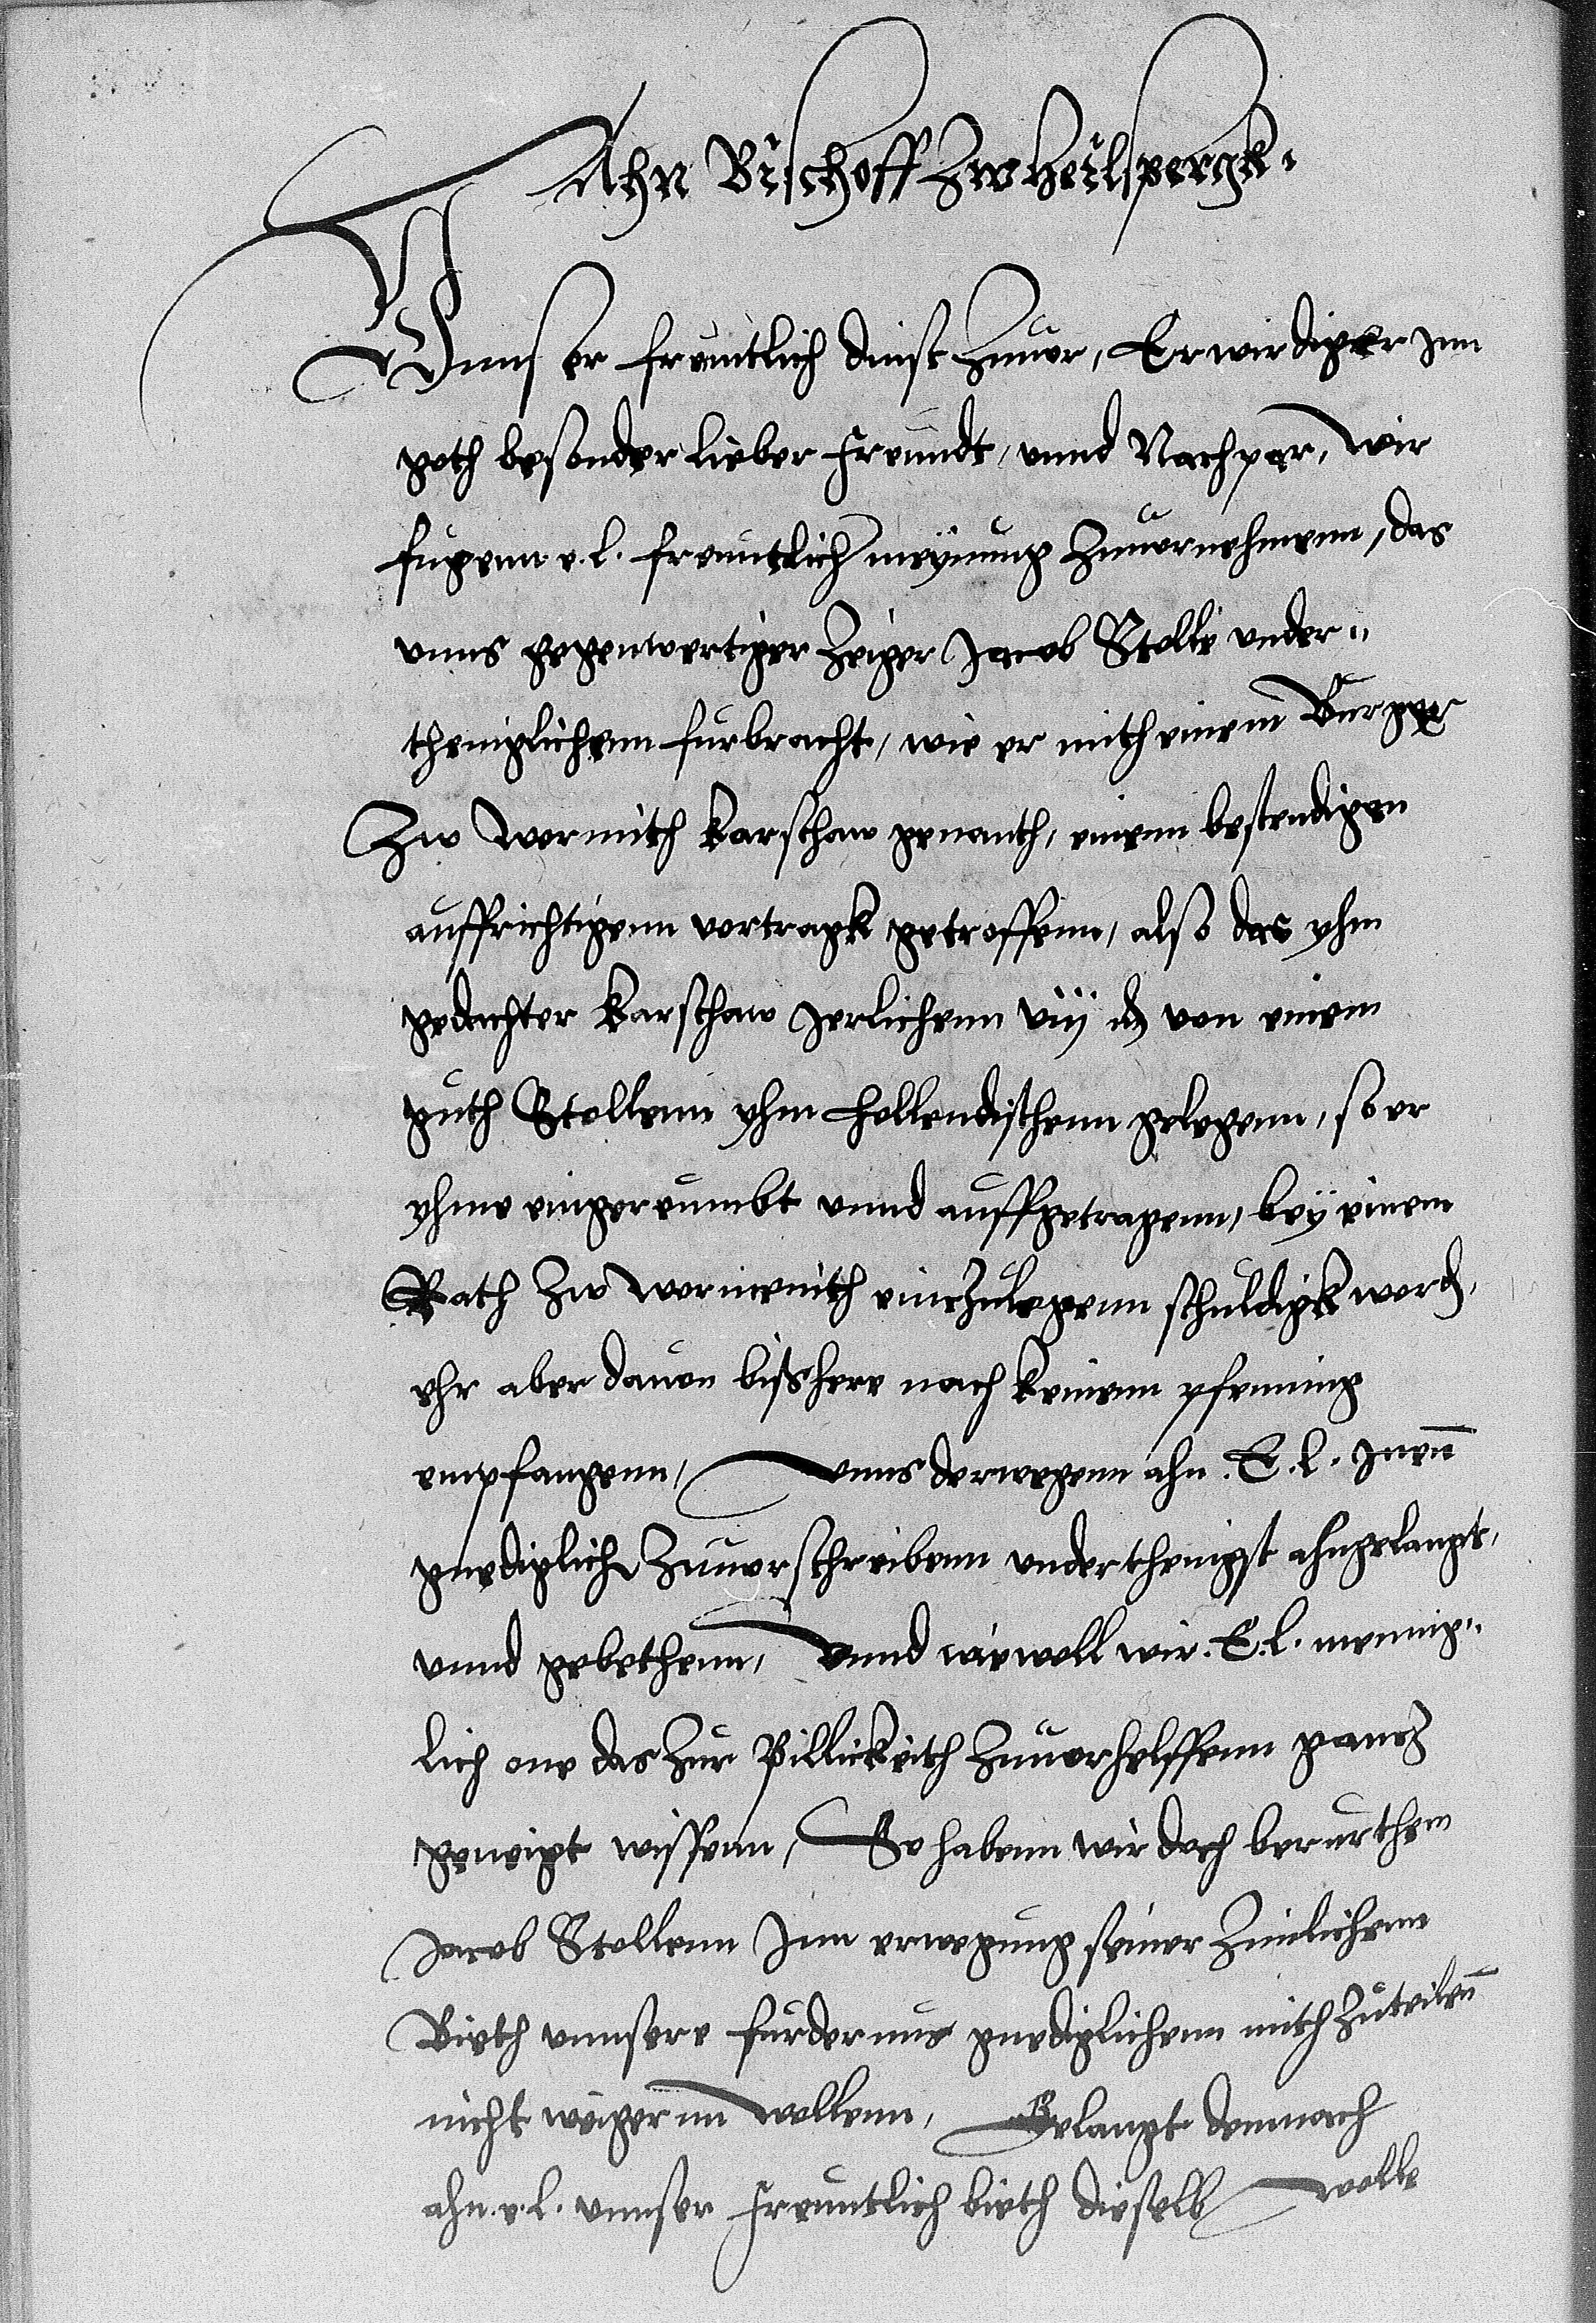 Ahn Bischoff Zw heilspergk.
Vnnser freuntlich dinst Zuuor, Erwirdiger Inn
goth besonder lieber freundt, vnnd Nachpar, Wir
fugenn e. l. freuntlich meynung Zuuornehmenn, das
vnns gegenwertiger Zeiger Jacob Stolle vnder„
theniglichenn furbracht, wie er mith einem Burger
Zw wormith karschaw genanth, einenn bestendigen
auffrichtigenn vortragk getroffenn, also das yhm
gedachter karschaw Jerlichenn viij von einem
guth Stollenn yhm hollendischenn gelegenn, so er
yhme eingereumbt vnnd auffgetragenn, bey einem
Rath Zw wormenith einZulegenn schuldigk word,
ehr aber dauon bißhere noch keinenn pfenning
empfangenn, Vnns derwegenn ahn. E. l. Inenn
gnediglich Zuuorschreibenn vnderthenigst ahngelangt,
vnnd gebethenn, Vnnd wiewoll wir. E. l. mennig„
lich one das Zur Pillickeith Zuuorhelffenn gancz
geneigt wissenn, So habenn wir doch berurthem
Jacob Stollenn Inn erwegung seiner Zimlichenn
Bieth vnnsere furdernus gnediglichenn mith Zuteilenn
nicht wegernn wollenn, Gelangt demnach
ahn. e. l. vnnser freuntlich bieth dieselb wolle